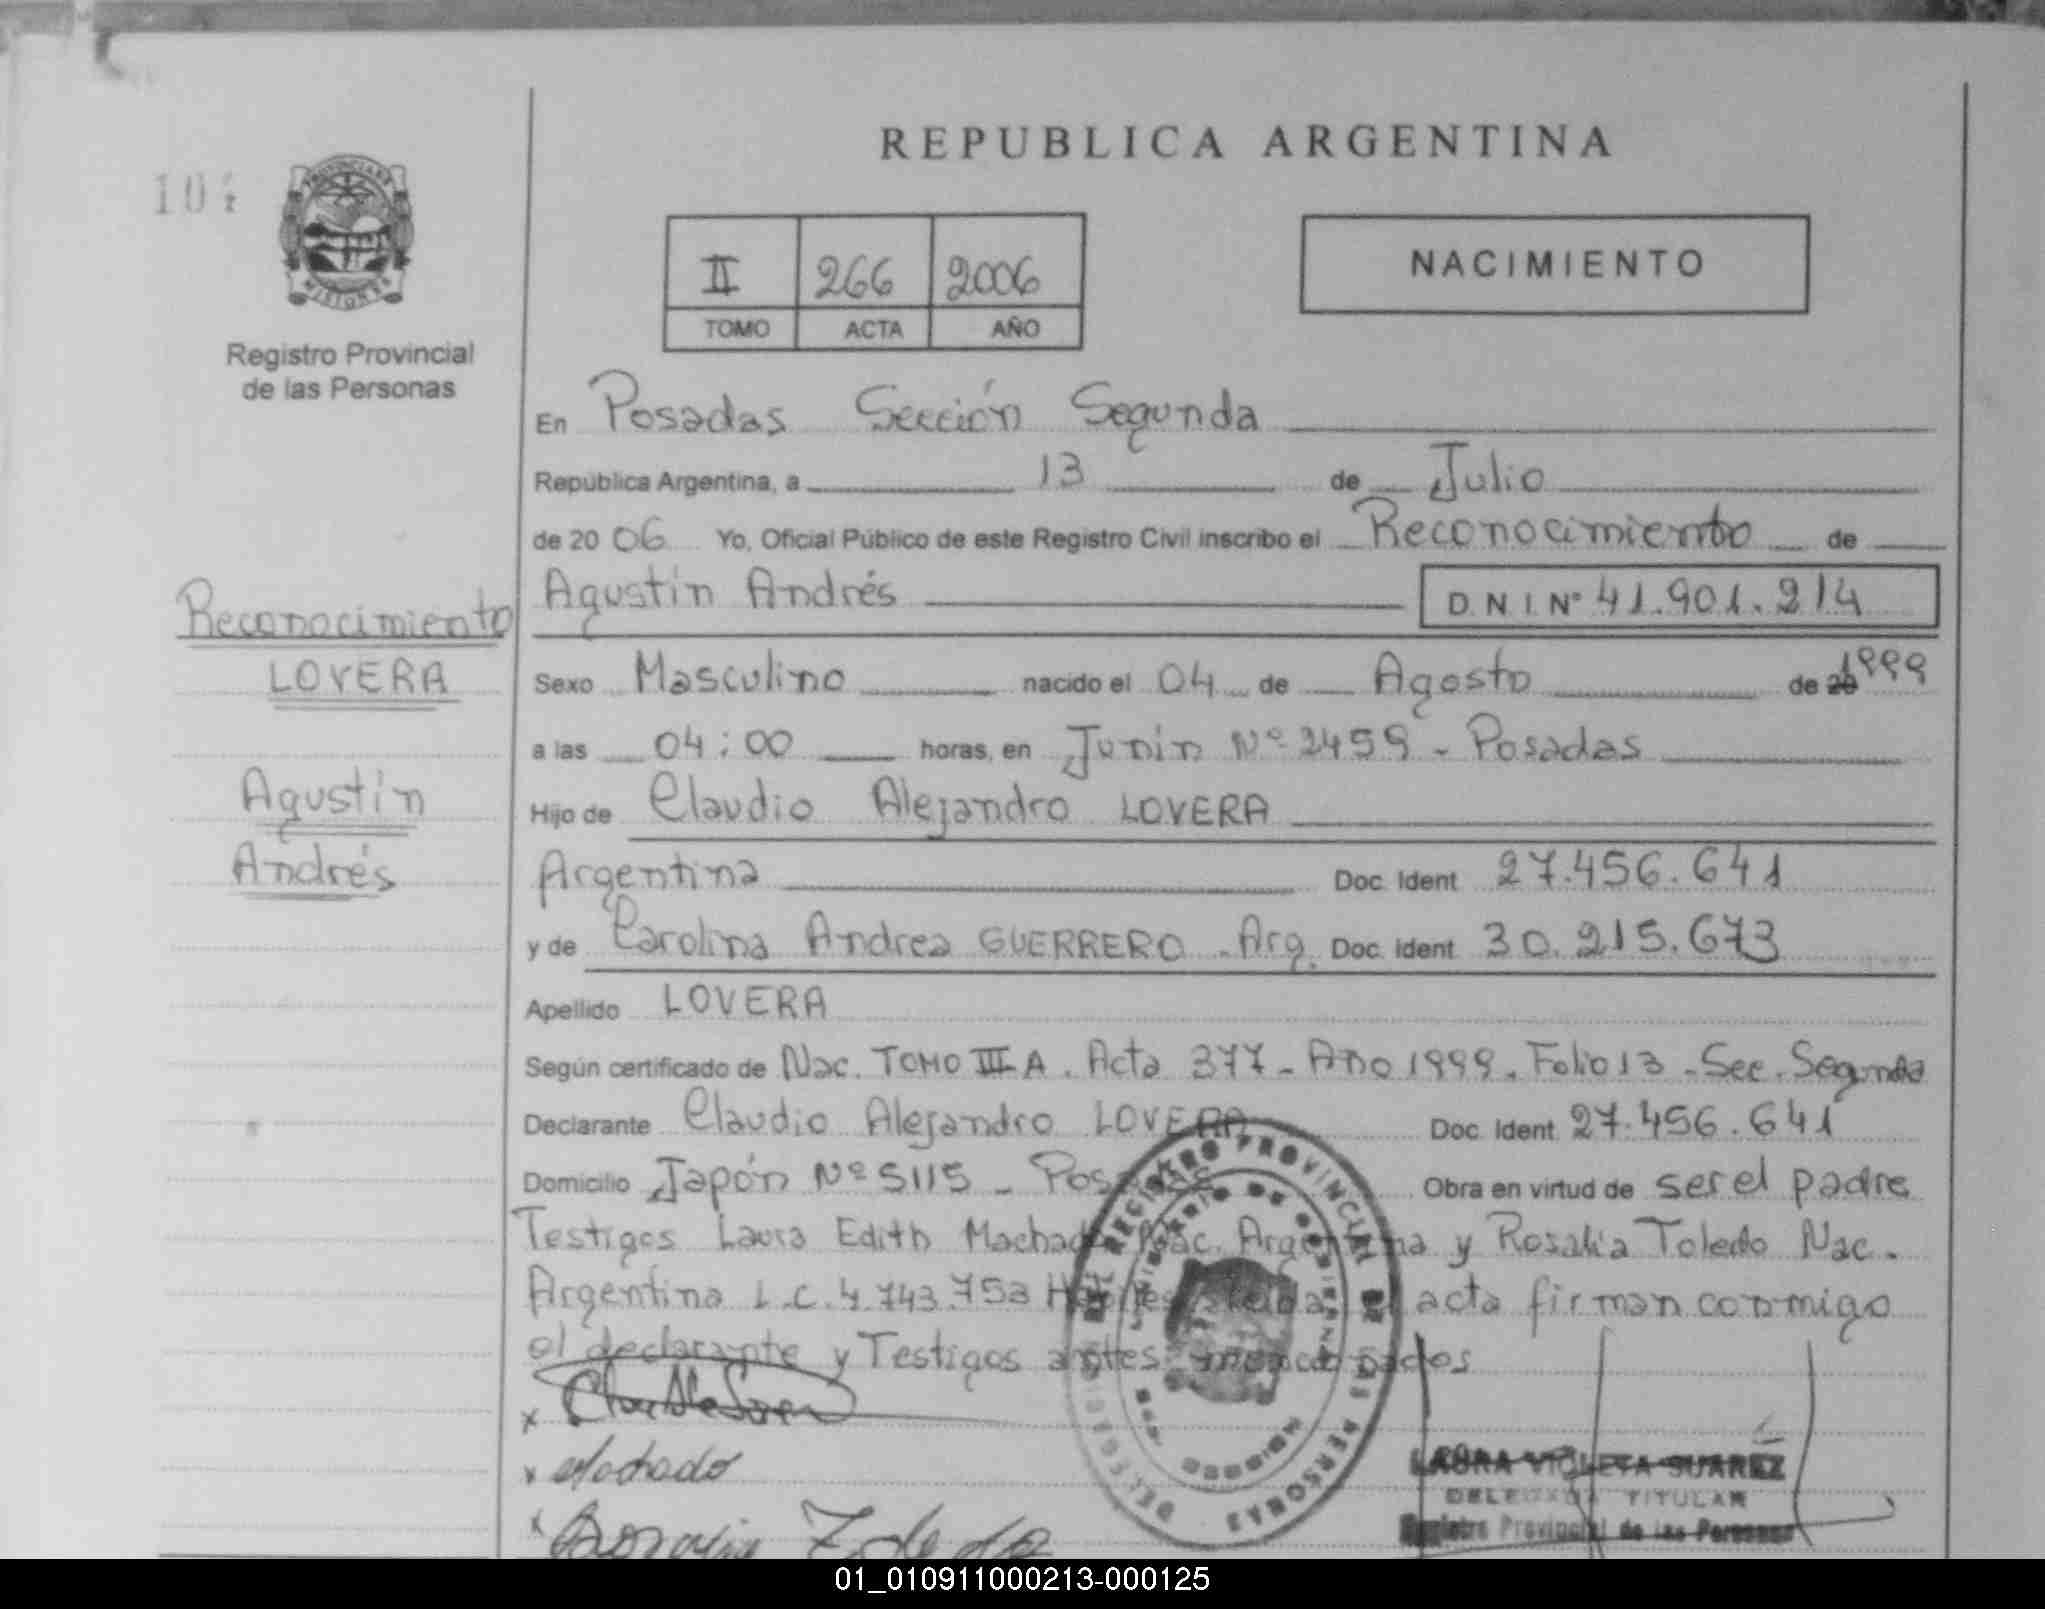 REPUBLICA ARGENTINA
10
PROVINCIA DE
MISIONES
Registro Provincial
de las Personas
II 266 2006
TOMO ACTA AÑO
NACIMIENTO
En Posadas Sección Segunda
República Argentina, a 13 de Julio
de 20 06 Yo, Oficial Público de este Registro Civil inscribo el Reconocimiento de
Agustín Andrés D.N.I. Nº 41.901.214
Reconocimiento
LOVERA
Agustín
Andrés
Sexo Masculino nacido el 04 de Agosto de 20 1999
a las 04:00 horas, en Junín Nº 2459 - Posadas
Hijo de Claudio Alejandro LOVERA
Argentina Doc. Ident 27.456.641
y de Carolina Andrea GUERRERO - Arg. Doc. Ident 30.215.673
Apellido LOVERA
Según certificado de Nac. TOMO III A. Acta 377 - Año 1999. Folio 13 - Sec. Segunda
Declarante Claudio Alejandro LOVERA Doc. Ident. 27.456.641
Domicilio Japón Nº 5115 - Posadas Obra en virtud de ser el padre
Testigos Laura Edith Machado Nac. Argentina y Rosalía Toledo Nac.
Argentina L.C. 4.743.753 acta firman conmigo
el declarante y Testigos antes mencionados
x
x Machado
x Toledo
REGISTRO PROVINCIAL DE LAS PERSONAS
MINISTERIO DE GOBIERNO
MISIONES
LAURA VIOLETA SUAREZ
DELEGADA TITULAR
Registro Provincial de las Personas
01_010911000213-000125